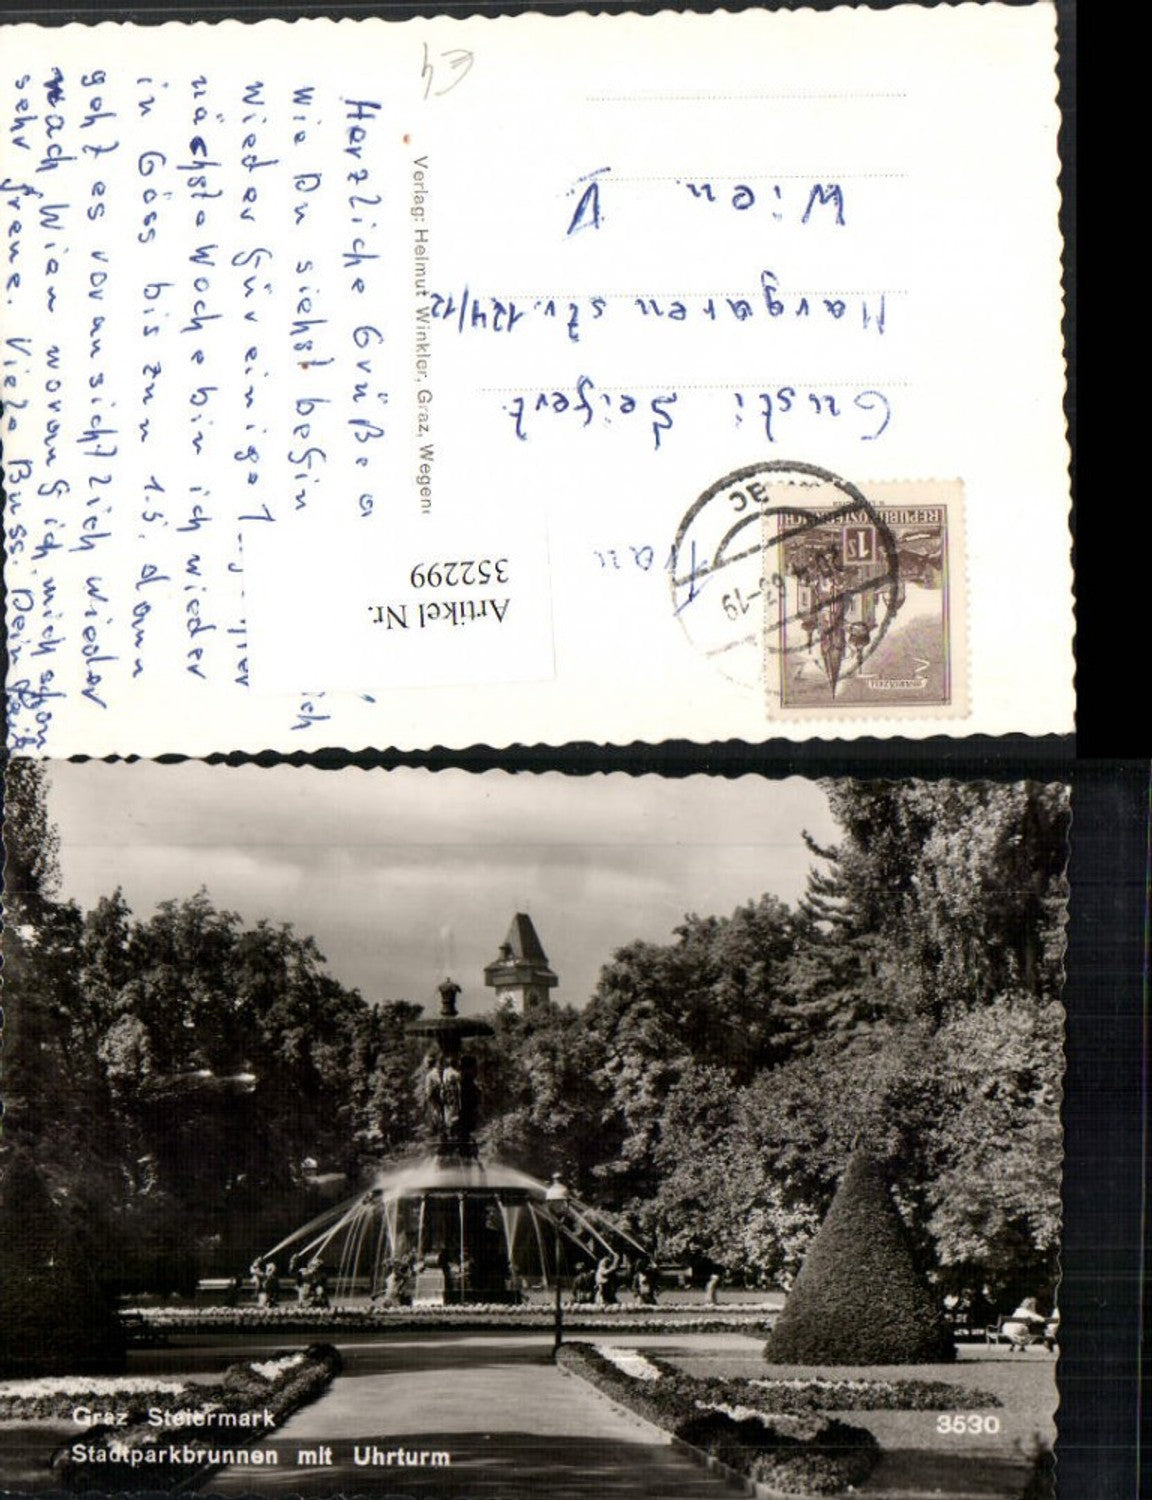 E4
Herzliche Grüße a
wie Du siehst begin ich
wieder für einige T
nächste Woche bin ich wieder
in Göss bis zum 1.5. dann
geht es voraussichtlich wieder
nach Wien worauf ich mich schon
sehr freue. Viele Bussi Dein
Verlag: Helmut Winkler, Graz, Wegen
Artikel Nr.
352299
REPUBLIK ÖSTERREICH
1S
MARIAZELL
-19
Frau
Gusti Seifert
Margareten str. 124/12
Wien V
Graz Steiermark
Stadtparkbrunnen mit Uhrturm
3530